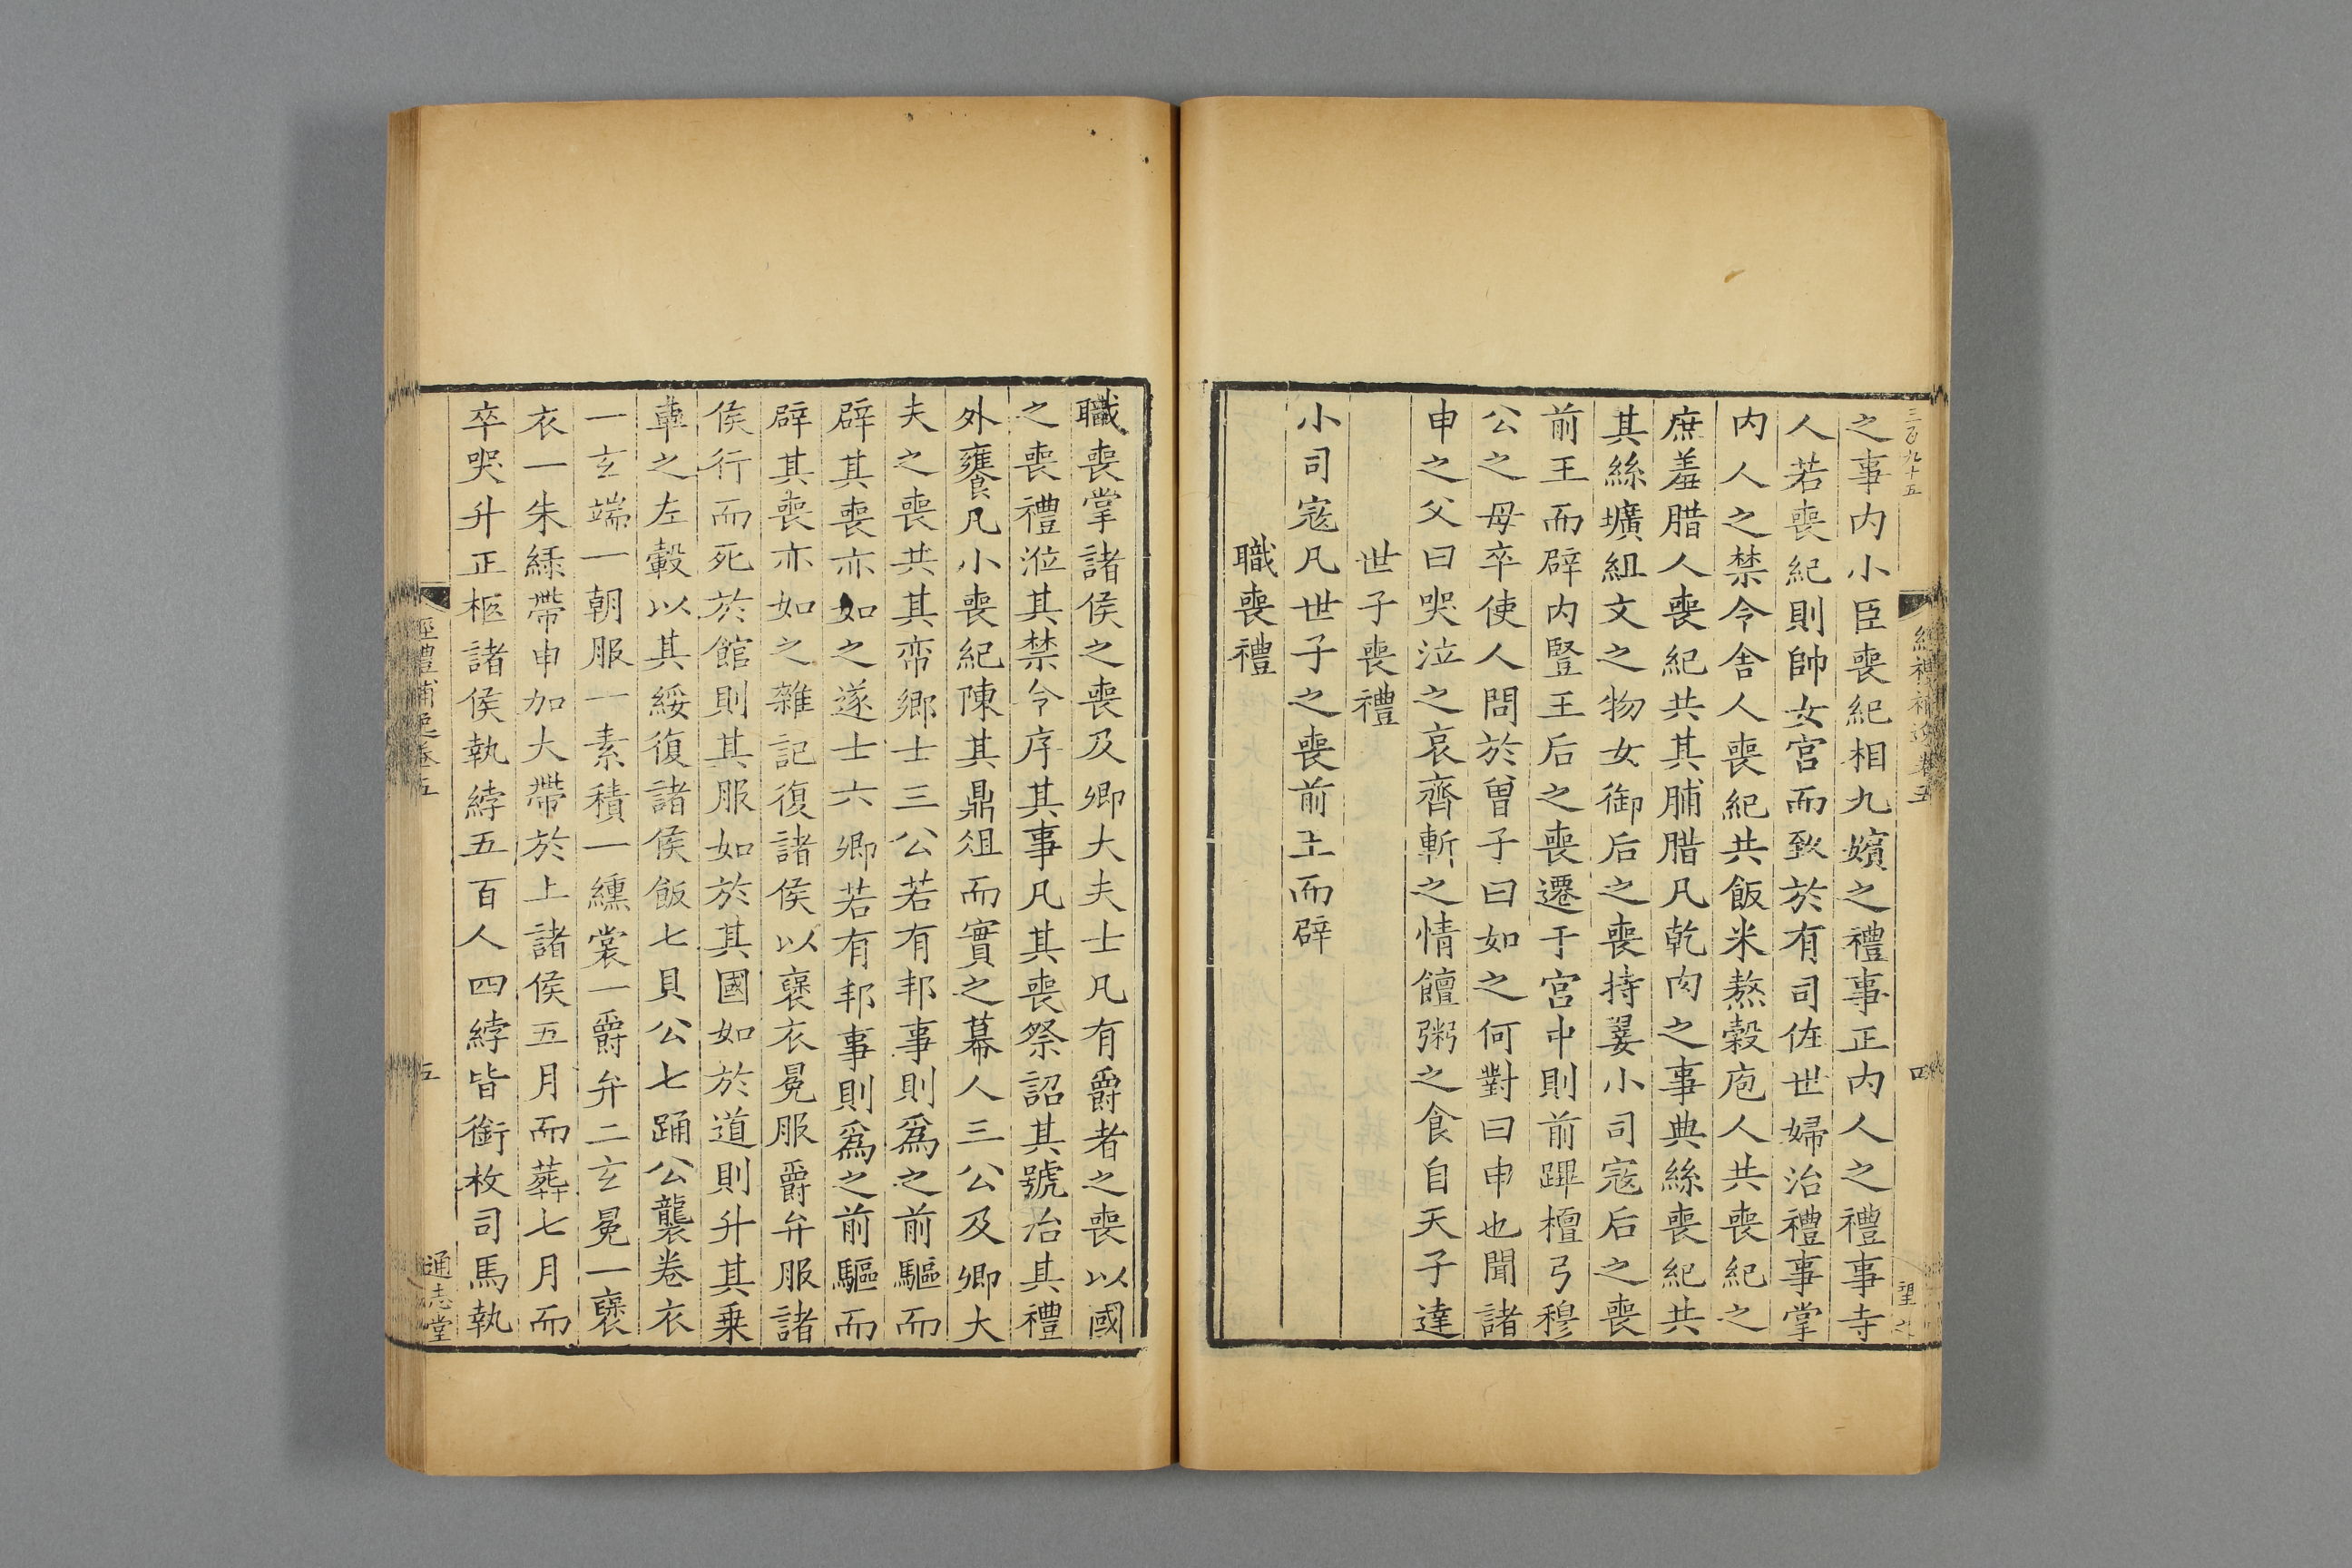 三百九十五
經禮補逸卷五
四
望之
之事内小臣喪紀相九嬪之禮事正内人之禮事寺
人若喪紀則帥女宮而致於有司佐世婦治禮事掌
内人之禁令舎人喪紀共飯米熬穀庖人共喪紀之
庶羞腊人喪紀共其脯腊凡乾肉之事典絲喪紀共
其絲壙組文之物女御后之喪持翣小司寇后之喪
前王而辟内豎王后之喪遷于宮中則前蹕檀弓穆
公之母卒使人問於曽子曰如之何對曰申也聞諸
申之父曰哭泣之哀齊斬之情饘粥之食自天子達
世子喪禮
小司寇凡世子之喪前王而辟
職喪禮
職喪掌諸侯之喪及卿大夫士凡有爵者之喪以國
之喪禮涖其禁令序其事凡其喪祭詔其號治其禮
外饔凡小喪紀陳其鼎俎而實之幕人三公及卿大
夫之喪共其帟鄉士三公若有邦事則爲之前驅而
辟其喪亦如之遂士六卿若有邦事則爲之前驅而
辟其喪亦如之雜記復諸侯以襃衣冕服爵弁服諸
侯行而死於館則其服如於其國如於道則升其乗
車之左轂以其綏復諸侯飯七貝公七踊公襲卷衣
一玄端一朝服一素積一纁裳一爵弁二玄冕一襃
衣一朱綠帶申加大帶於上諸侯五月而葬七月而
卒哭升正柩諸侯執綍五百人四綍皆銜枚司馬執
經禮補逸卷五
五
通志堂